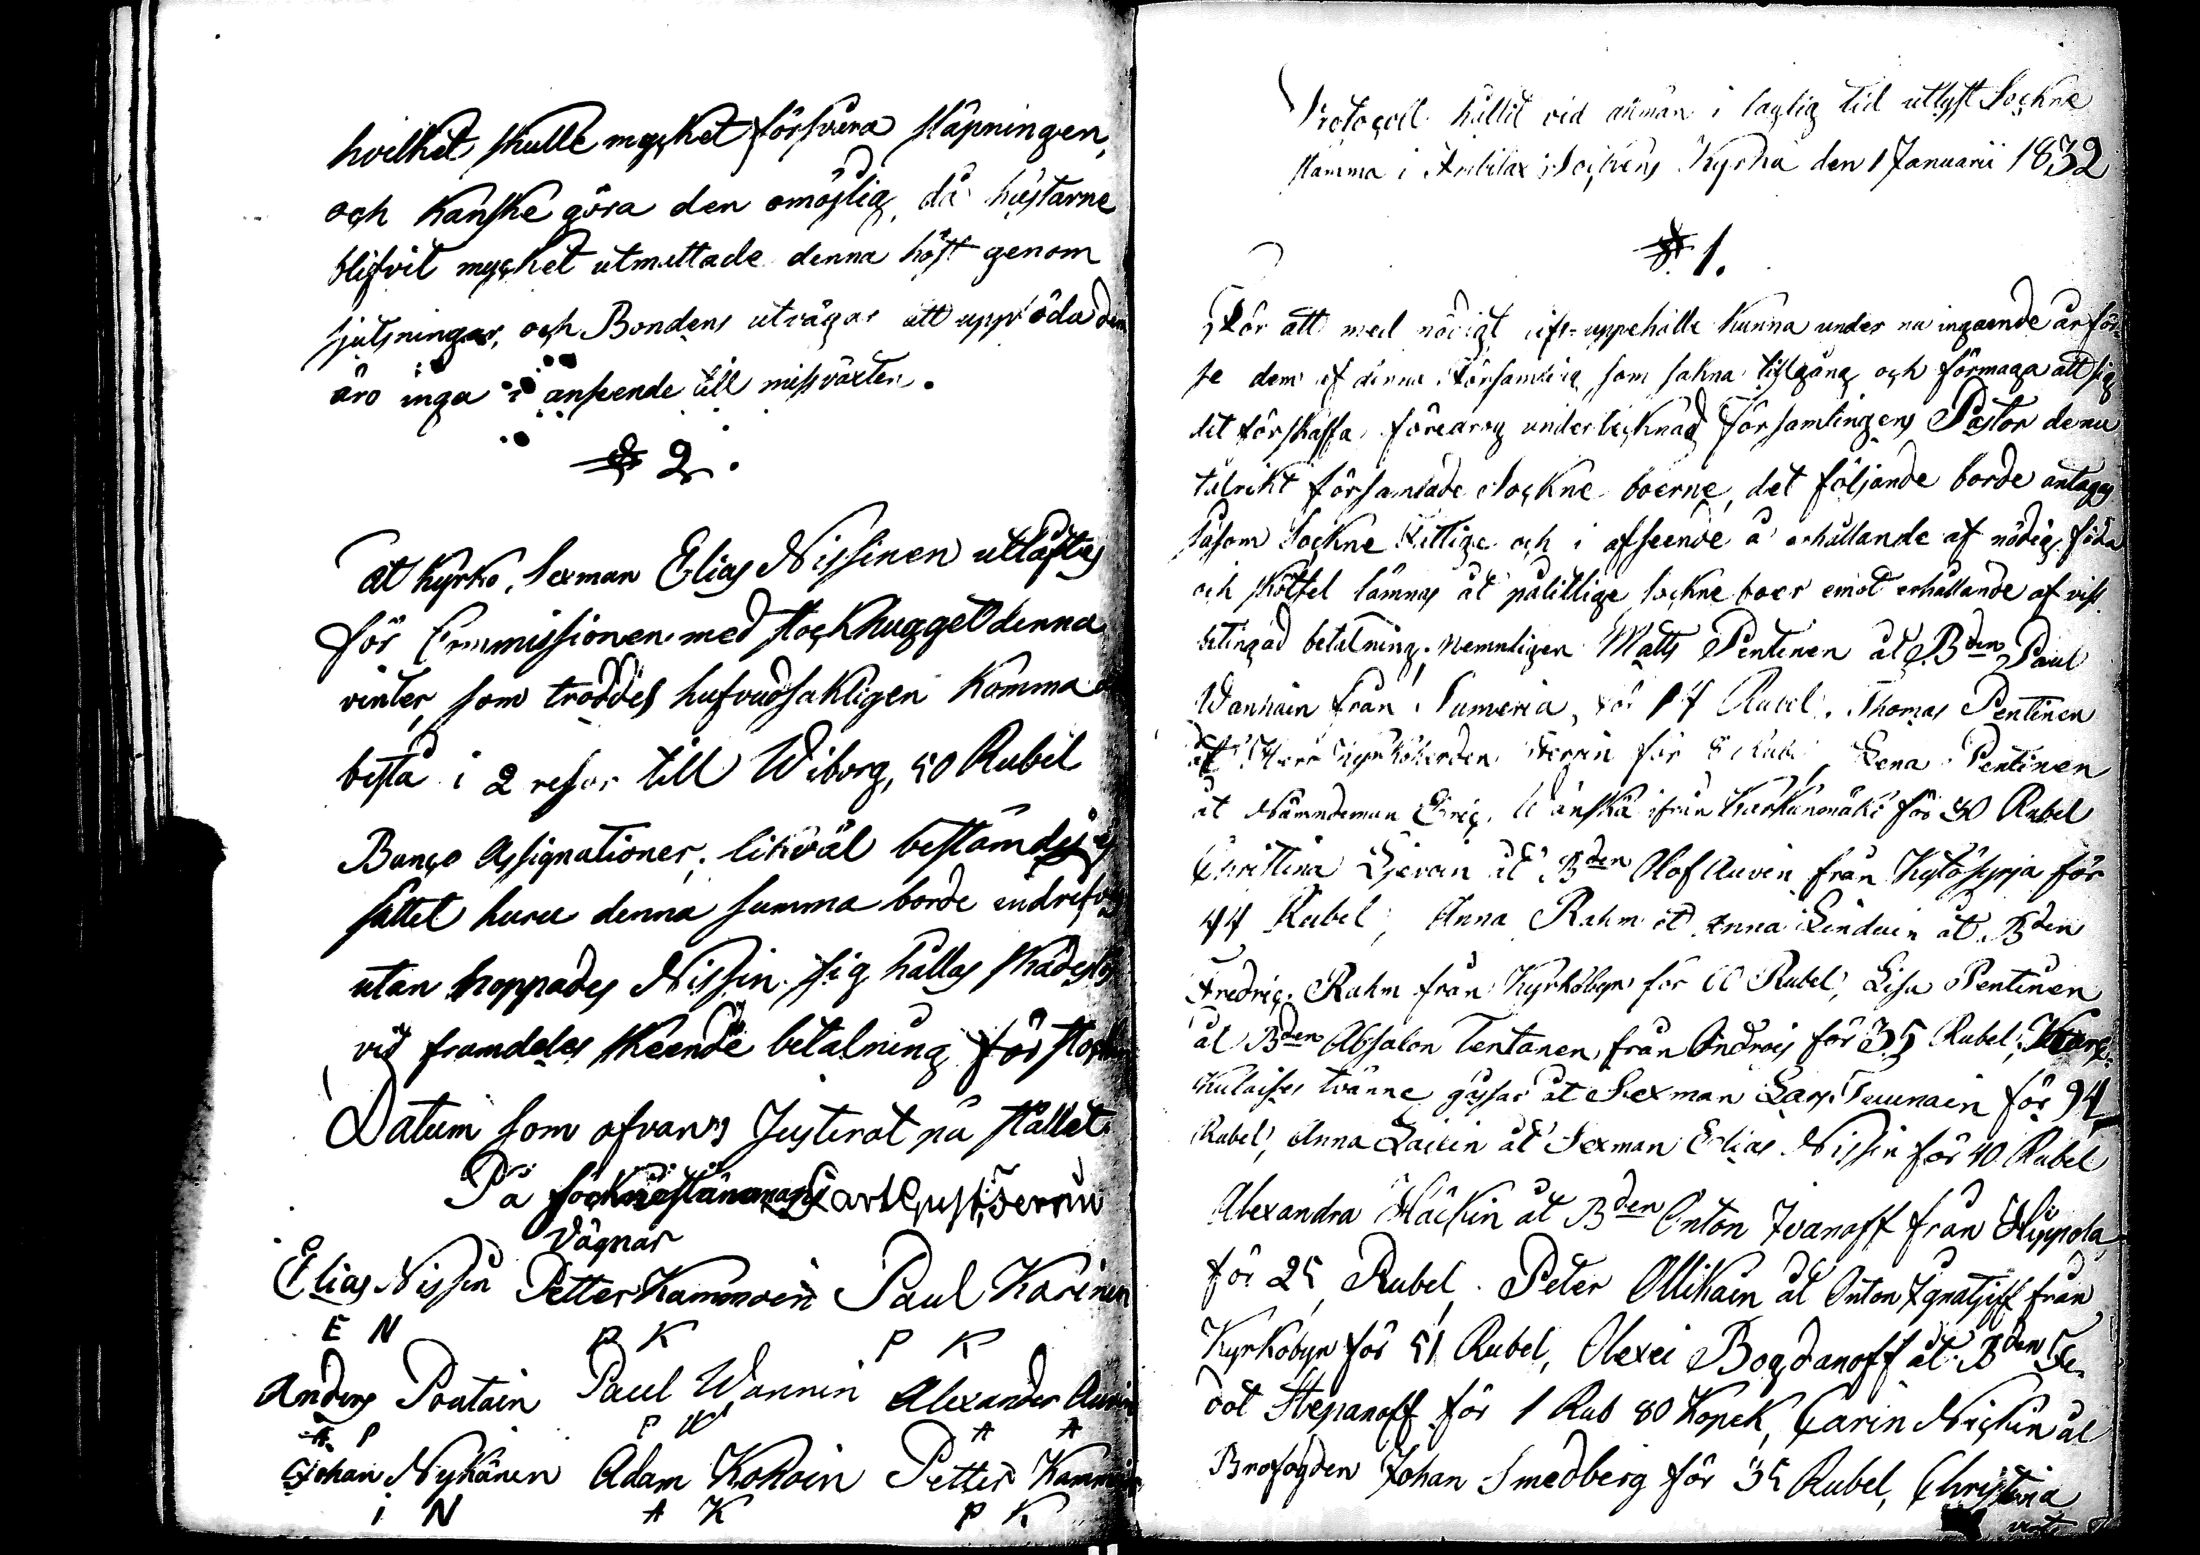 hvilket skulle mycket försvåra släpningen,
och kanske göra den omöjlig, då hästarne
blifvit mycket utmattade denna höst genom
skjutsningar, och Bondens utvägar att uppföda dem
äro inga i anseende till missväxten.
§ 2.
At Kyrko, Sexman Elias Nissinen utlåftes
för Commissionen med stockhugget denna
vinter, som troddes hufvudsakligen komma a
bestå i 2 resor till Wiborg, 50 Rubel
Banco Assignationer, likväl bestämdes ej
sättet huru denna summa borde indrifvas
utan hoppades Nissin sig hållas skadeslös
vid framdeles skeende betalning för stock
Datum som ofvan, Justerat på stället.
På Socknestämmans Carl Gust. Serrin
vägnar
Elias Nissin Petter Kammoin Paul Karinen
E N P K P K
Anders Poutain Paul Wannin Alexander Auvin
A P P W A A
Johan Nykänen Adam Kokoin Petter Kammoin
i N A K P K
Protocoll hållit vid allmän i laglig tid utlyst Sockne
stämma i Sockens Kyrka den 1 Januarii 1832
§ 1.
För att med nödigt lifs-uppehälle kunna under nu ingående år förse
se dem af denna Församling som sakna tillgång och förmåga att sig
det förskaffa, föredrog undertecknad Församlingens Pastor denu
talrikt församlade Sockneboerne, det följande borde antagas
såsom Sockne Fattige och i afseende å erhållande af nödig föda
och skötsel lämnas åt pålitlige Sockneboer emot erhållande af viss
betingad betalning, nemnligen Matts Pentinen åt Bden Paul
Wannain från Rubel, Thomas Pentinen
åt Herr Kyrkoherden Serrin för Rubel Lena Pentinen
åt Nämndeman Eric Wänskä från för 30 Rubel
Christina åt Bden Olof Auvin från Kytösyrja för
44 Rubel, Anna Rahm åt Bden
Fredric Rahm från Kyrkobyn för Rubel, Lisa Pentinen
åt Bden Absalon Tentanen från för 35 Rubel,
tvänne gossar åt Sexman Lars för 94
Rubel, Anna åt Sexman Elias Nissin för 40 Rubel
Alexandra Häckin åt Bden Anton Ivanoff från
för 25 Rubel, Peter Ollikain åt Anton Ignatjeff från
Kyrkobyn för 51 Rubel, Alexei Bogdanoff åt Bden Fe-
dot Stepanoff för 1 Rub 80 Kopek, Carin åt
Brofogden Johan Smedberg för 35 Rubel, Christina